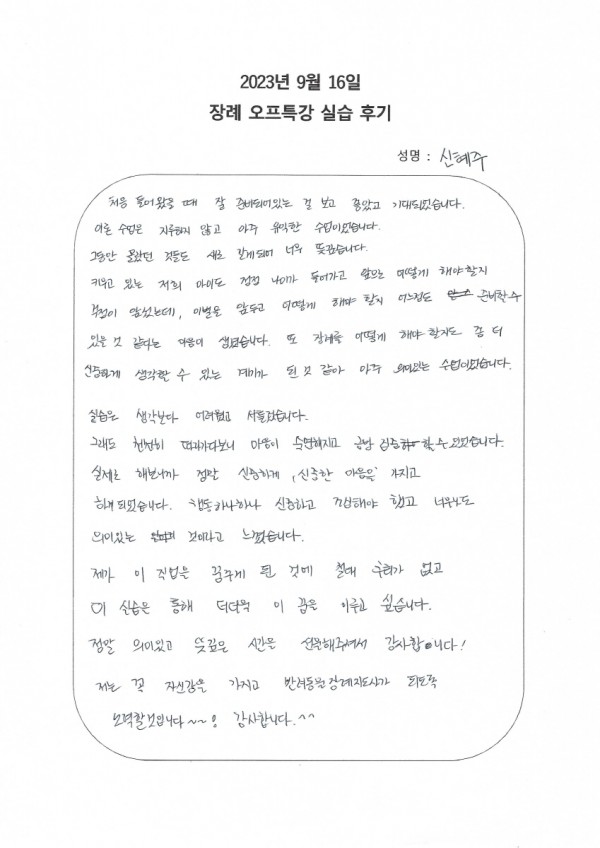 2023년 9월 16일
장례 오프특강 실습 후기
성명 : 신혜주
처음 들어왔을 때 잘 준비되어있는 걸 보고 좋았고 기대되었습니다.
이론 수업은 지루하지 않고 아주 유익한 수업이었습니다.
그동안 몰랐던 것들도 새로 알게되어 너무 뜻깊습니다.
키우고 있는 저희 아이도 점점 나이가 들어가고 앞으로 어떻게 해야할지
걱정이 앞섰는데, 이별을 앞두고 어떻게 해야 할지 어느정도 준비할 수
있을 것 같다는 마음이 생겼습니다. 또 장례를 어떻게 해야 할지도 좀 더
신중하게 생각할 수 있는 계기가 된 것 같아 아주 의미있는 수업이었습니다.
실습은 생각보다 어려웠고 서툴렀습니다.
그래도 천천히 따라가다보니 마음이 숙연해지고 금방 집중 할 수 있었습니다.
실제로 해보니까 정말 신중하게, 신중한 마음을 가지고
하게 되었습니다. 행동하나하나 신중하고 조심해야 했고 너무나도
의미있는 것이라고 느꼈습니다.
제가 이 직업을 꿈꾸게 된 것에 절대 후회가 없고
이 실습은 통해 더더욱 이 꿈을 이루고 싶습니다.
정말 의미있고 뜻깊은 시간을 선물해주셔서 감사합니다!
저는 꼭 자신감을 가지고 반려동물장례지도사가 되도록
노력할것입니다~~! 감사합니다.^^